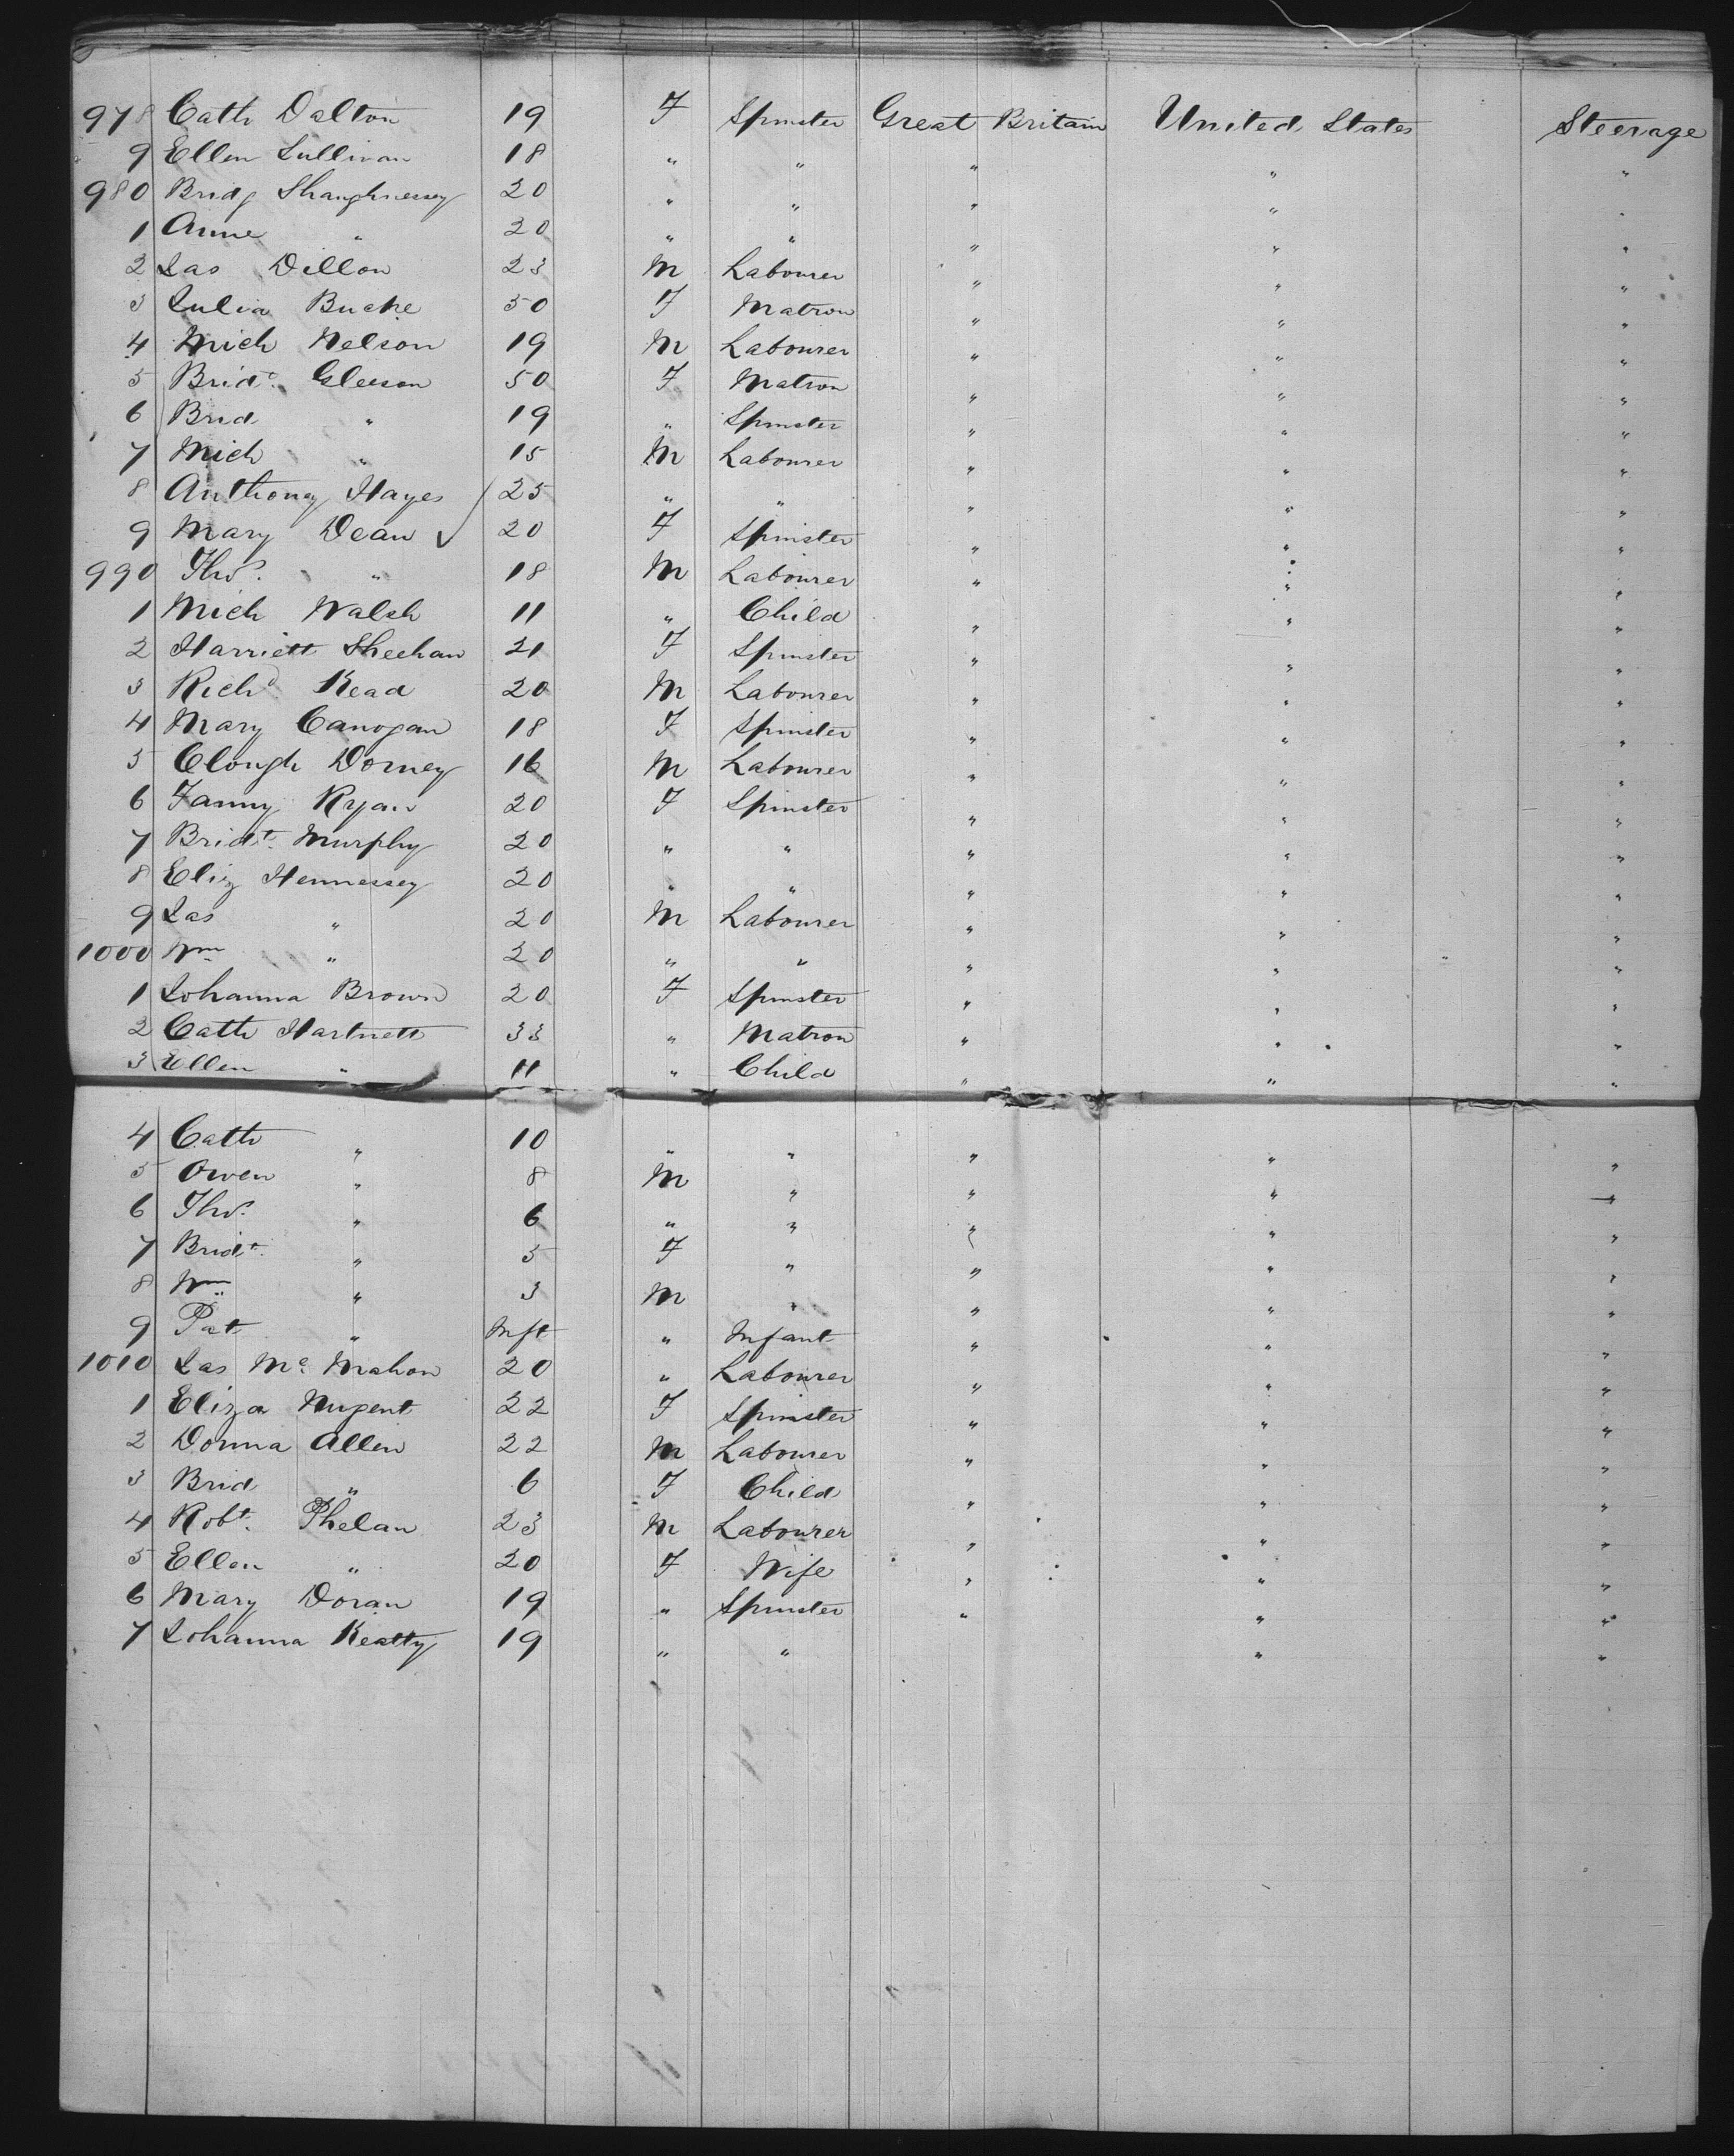 978 Cath Dalton 19 F Spinster Great Britain United States Steerage
9 Ellen Sullivan 18 " " " " "
980 Bridg Shaughnessy 20 " " " " "
1 Anne " 20 " " " " "
2 Jas Dillon 23 M Labourer " " "
3 Julia Burke 50 F Matron " " "
4 Mich Nelson 19 M Labourer " " "
5 Bridt. Gleeson 50 F Matron " " "
6 Brid " 19 " Spinster " " "
7 Mich " 15 M Labourer " " "
8 Anthony Hayes 25 " " " " "
9 Mary Dean 20 F Spinster " " "
990 Thos. " 18 M Labourer " " "
1 Mich Walsh 11 " Child " " "
2 Harriett Sheehan 21 F Spinster " " "
3 Richd Read 20 M Labourer " " "
4 Mary Canogan 18 F Spinster " " "
5 Clough Dorney 16 M Labourer " " "
6 Fanny Ryan 20 F Spinster " " "
7 Bridt. Murphy 20 " " " " "
8 Eliz Hennessey 20 " " " " "
9 Jas " 20 M Labourer " " "
1000 Wm " 20 " " " " "
1 Johanna Brown 20 F Spinster " " "
2 Cath Hartnett 33 " Matron " " "
3 Ellen " 11 " Child " " "
4 Cath " 10 " " " " "
5 Owen " 8 M " " " "
6 Thos. " 6 " " " " "
7 Bridt. " 5 F " " " "
8 Wm " 3 M " " " "
9 Pat " Inft " Infant " " "
1010 Jas Mc. Mahon 20 " Labourer " " "
1 Eliza Nugent 22 F Spinster " " "
2 Donna Allen 22 M Labourer " " "
3 Brid " 6 F Child " " "
4 Robt. Phelan 23 M Labourer " " "
5 Ellen " 20 F Wife " " "
6 Mary Doran 19 " Spinster " " "
7 Johanna Keatty 19 " " " "